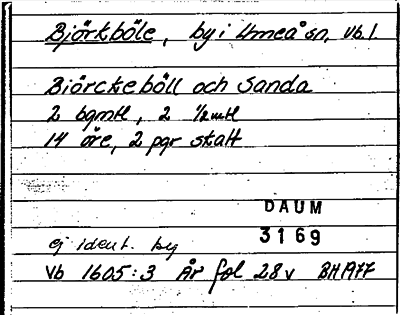 Björkböle, by i Umeå sn, Vb l
Biörckeböll och Sanda
2 bgmtl, 2 1/2mtl
14 öre, 2 pgr skatt
DAUM
3169
ej ident. by
Vb 1605:3 År fol 28v BH1977